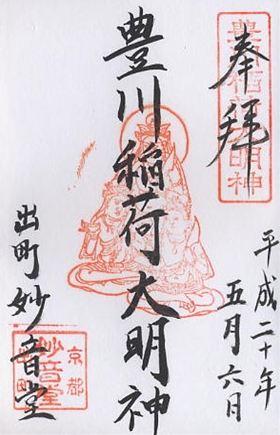 奉拝
豊川稲荷大明神
平成二十年
五月六日
豊川稲荷大明神
出町妙音堂
京都
妙音堂
出町